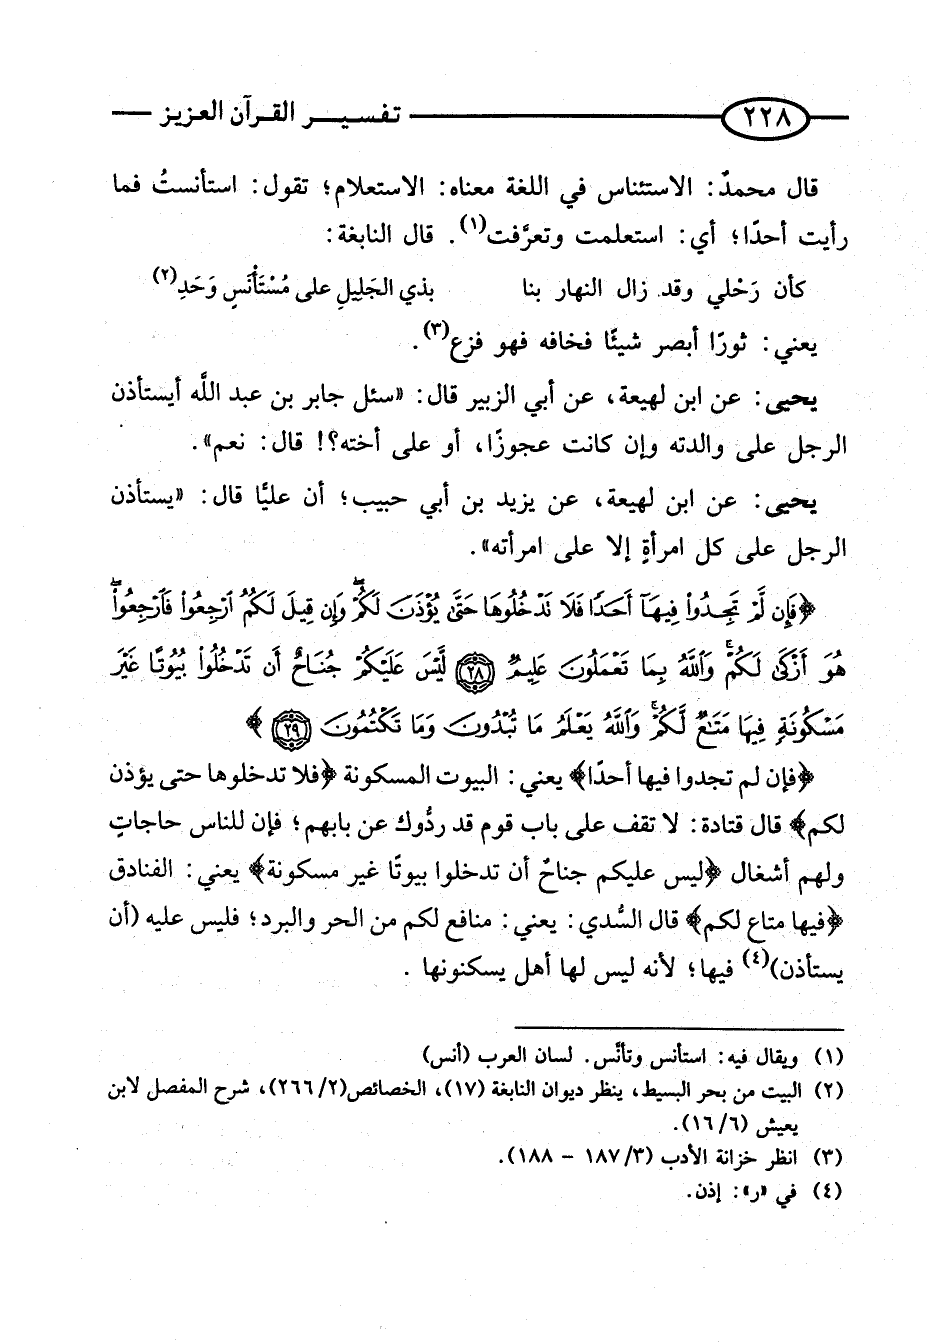 ٢٢٨ تفسير القرآن العزيز
قال محمدٌ: الاستئناس في اللغة معناه: الاستعلام؛ تقول: استأنستُ فما
رأيت أحدًا؛ أي: استعلمت وتعرَّفت(١). قال النابغة:
كأن رَحْلي وقد زال النهار بنا بذي الجَليلِ على مُسْتَأْنَسٍ وَحَدِ(٢)
يعني: ثورًا أبصر شيئًا فخافه فهو فزع(٣).
يحيى: عن ابن لهيعة، عن أبي الزبير قال: «سئل جابر بن عبد اللَّه أيستأذن
الرجل على والدته وإن كانت عجوزًا، أو على أخته؟! قال: نعم».
يحيى: عن ابن لهيعة، عن يزيد بن أبي حبيب؛ أن عليًّا قال: «يستأذن
الرجل على كل امرأةٍ إلا على امرأته».
﴿فَإِن لَّمْ تَجِدُوا۟ فِيهَآ أَحَدًا فَلَا تَدْخُلُوهَا حَتَّىٰ يُؤْذَنَ لَكُمْ ۖ وَإِن قِيلَ لَكُمُ ٱرْجِعُوا۟ فَٱرْجِعُوا۟ ۖ
هُوَ أَزْكَىٰ لَكُمْ ۚ وَٱللَّهُ بِمَا تَعْمَلُونَ عَلِيمٌ ﴿٢٨﴾ لَّيْسَ عَلَيْكُمْ جُنَاحٌ أَن تَدْخُلُوا۟ بُيُوتًا غَيْرَ
مَسْكُونَةٍ فِيهَا مَتَٰعٌ لَّكُمْ ۚ وَٱللَّهُ يَعْلَمُ مَا تُبْدُونَ وَمَا تَكْتُمُونَ ﴿٢٩﴾ ﴾
﴿فإن لم تجدوا فيها أحدًا﴾ يعني: البيوت المسكونة ﴿فلا تدخلوها حتى يؤذن
لكم﴾ قال قتادة: لا تقف على باب قوم قد ردُّوك عن بابهم؛ فإن للناس حاجاتٍ
ولهم أشغال ﴿ليس عليكم جناحٌ أن تدخلوا بيوتًا غير مسكونة﴾ يعني: الفنادق
﴿فيها متاع لكم﴾ قال السُّدي: يعني: منافع لكم من الحر والبرد؛ فليس عليه (أن
يستأذن)(٤) فيها؛ لأنه ليس لها أهل يسكنونها .
(١) ويقال فيه: استأنس وتأنَّس. لسان العرب (أنس)
(٢) البيت من بحر البسيط، ينظر ديوان النابغة (١٧)، الخصائص(٢/٢٦٦)، شرح المفصل لابن
يعيش (٦/١٦).
(٣) انظر خزانة الأدب (٣/١٨٧ - ١٨٨).
(٤) في «ر»: إذن.